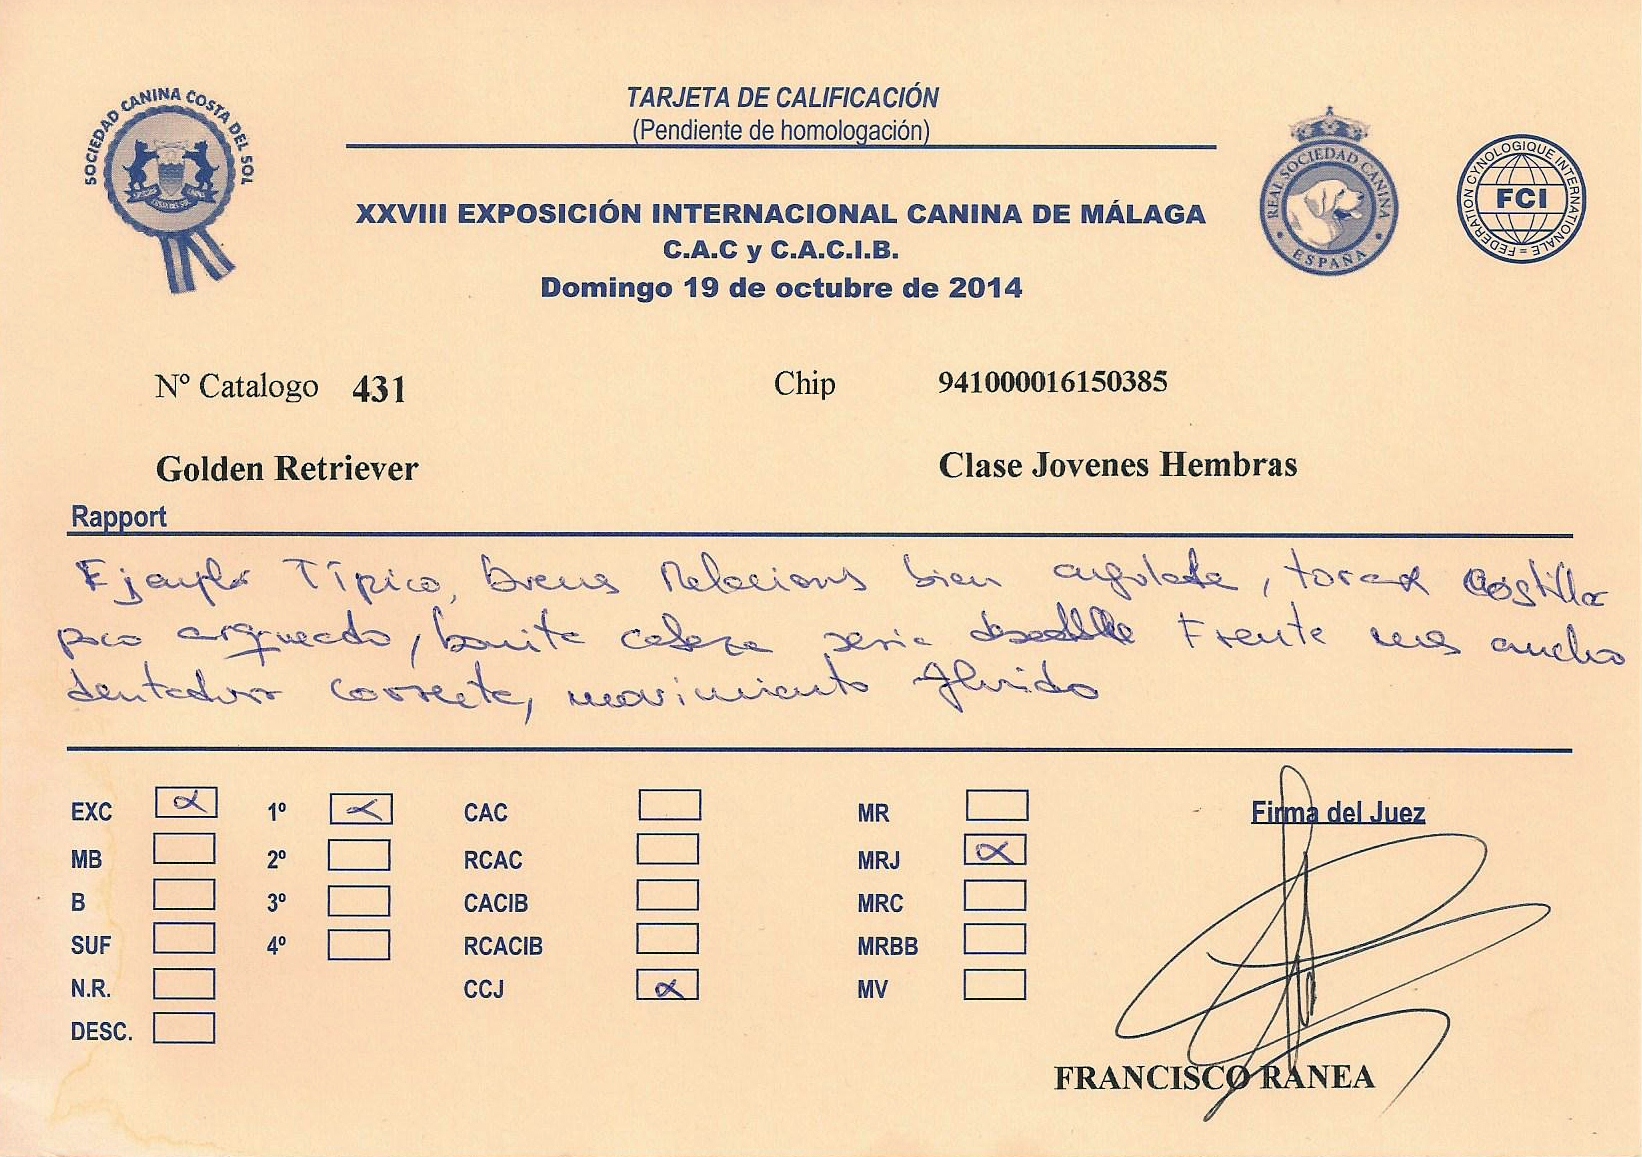 SOCIEDAD CANINA COSTA DEL SOL
TARJETA DE CALIFICACIÓN
(Pendiente de homologación)
REAL SOCIEDAD CANINA
• ESPAÑA •
FEDERATION CYNOLOGIQUE INTERNATIONALE =
FCI
XXVIII EXPOSICIÓN INTERNACIONAL CANINA DE MÁLAGA
C.A.C y C.A.C.I.B.
Domingo 19 de octubre de 2014
Nº Catalogo 431 Chip 941000016150385
Golden Retriever Clase Jovenes Hembras
Rapport
Ejemplar Típico, buenas Relaciones bien angulada, torax costilla
poco arqueado, bonita cabeza seria deseable Frente mas ancho
dentadura correcta, movimiento fluido
EXC 1º CAC MR Firma del Juez
MB 2º RCAC MRJ
B 3º CACIB MRC
SUF 4º RCACIB MRBB
N.R. CCJ MV
DESC.
FRANCISCO RANEA